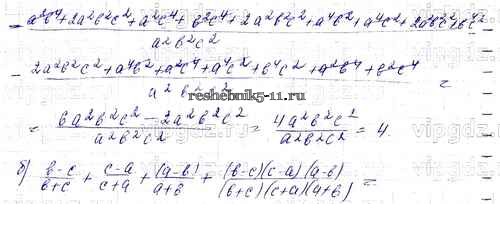 = a²b⁴ + 2a²b²c² + a²c⁴ + b²c⁴ + 2a²b²c² + a⁴b² + a⁴c² + 2a²b²c² + b⁴c²
a²b²c²
- 2a²b²c² + a⁴b² + a²c⁴ + a⁴c² + b⁴c² + a²b⁴ + b²c⁴ =
a²b²c²
reshebnik5-11.ru
= 6a²b²c² - 2a²b²c² / a²b²c² = 4a²b²c² / a²b²c² = 4.
б) b-c / b+c + c-a / c+a + (a-b) / a+b + (b-c)(c-a)(a-b) / (b+c)(c+a)(a+b) =